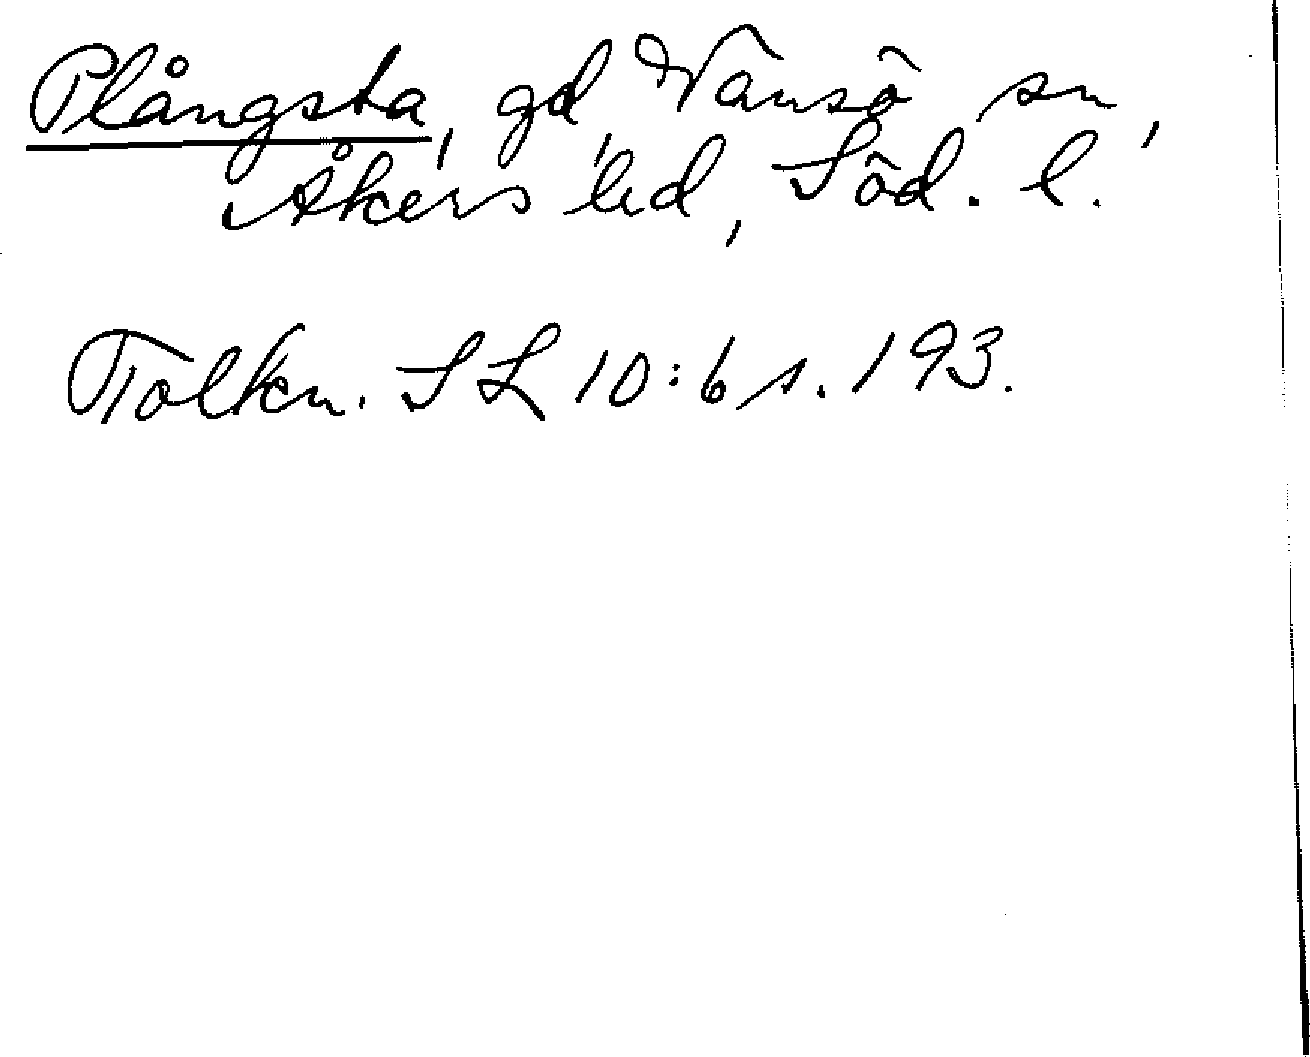 Plångsta, gd, Vänsö sn,
Åkers hd, Söd. l.
Tolkn. SL 10:6 s. 193.